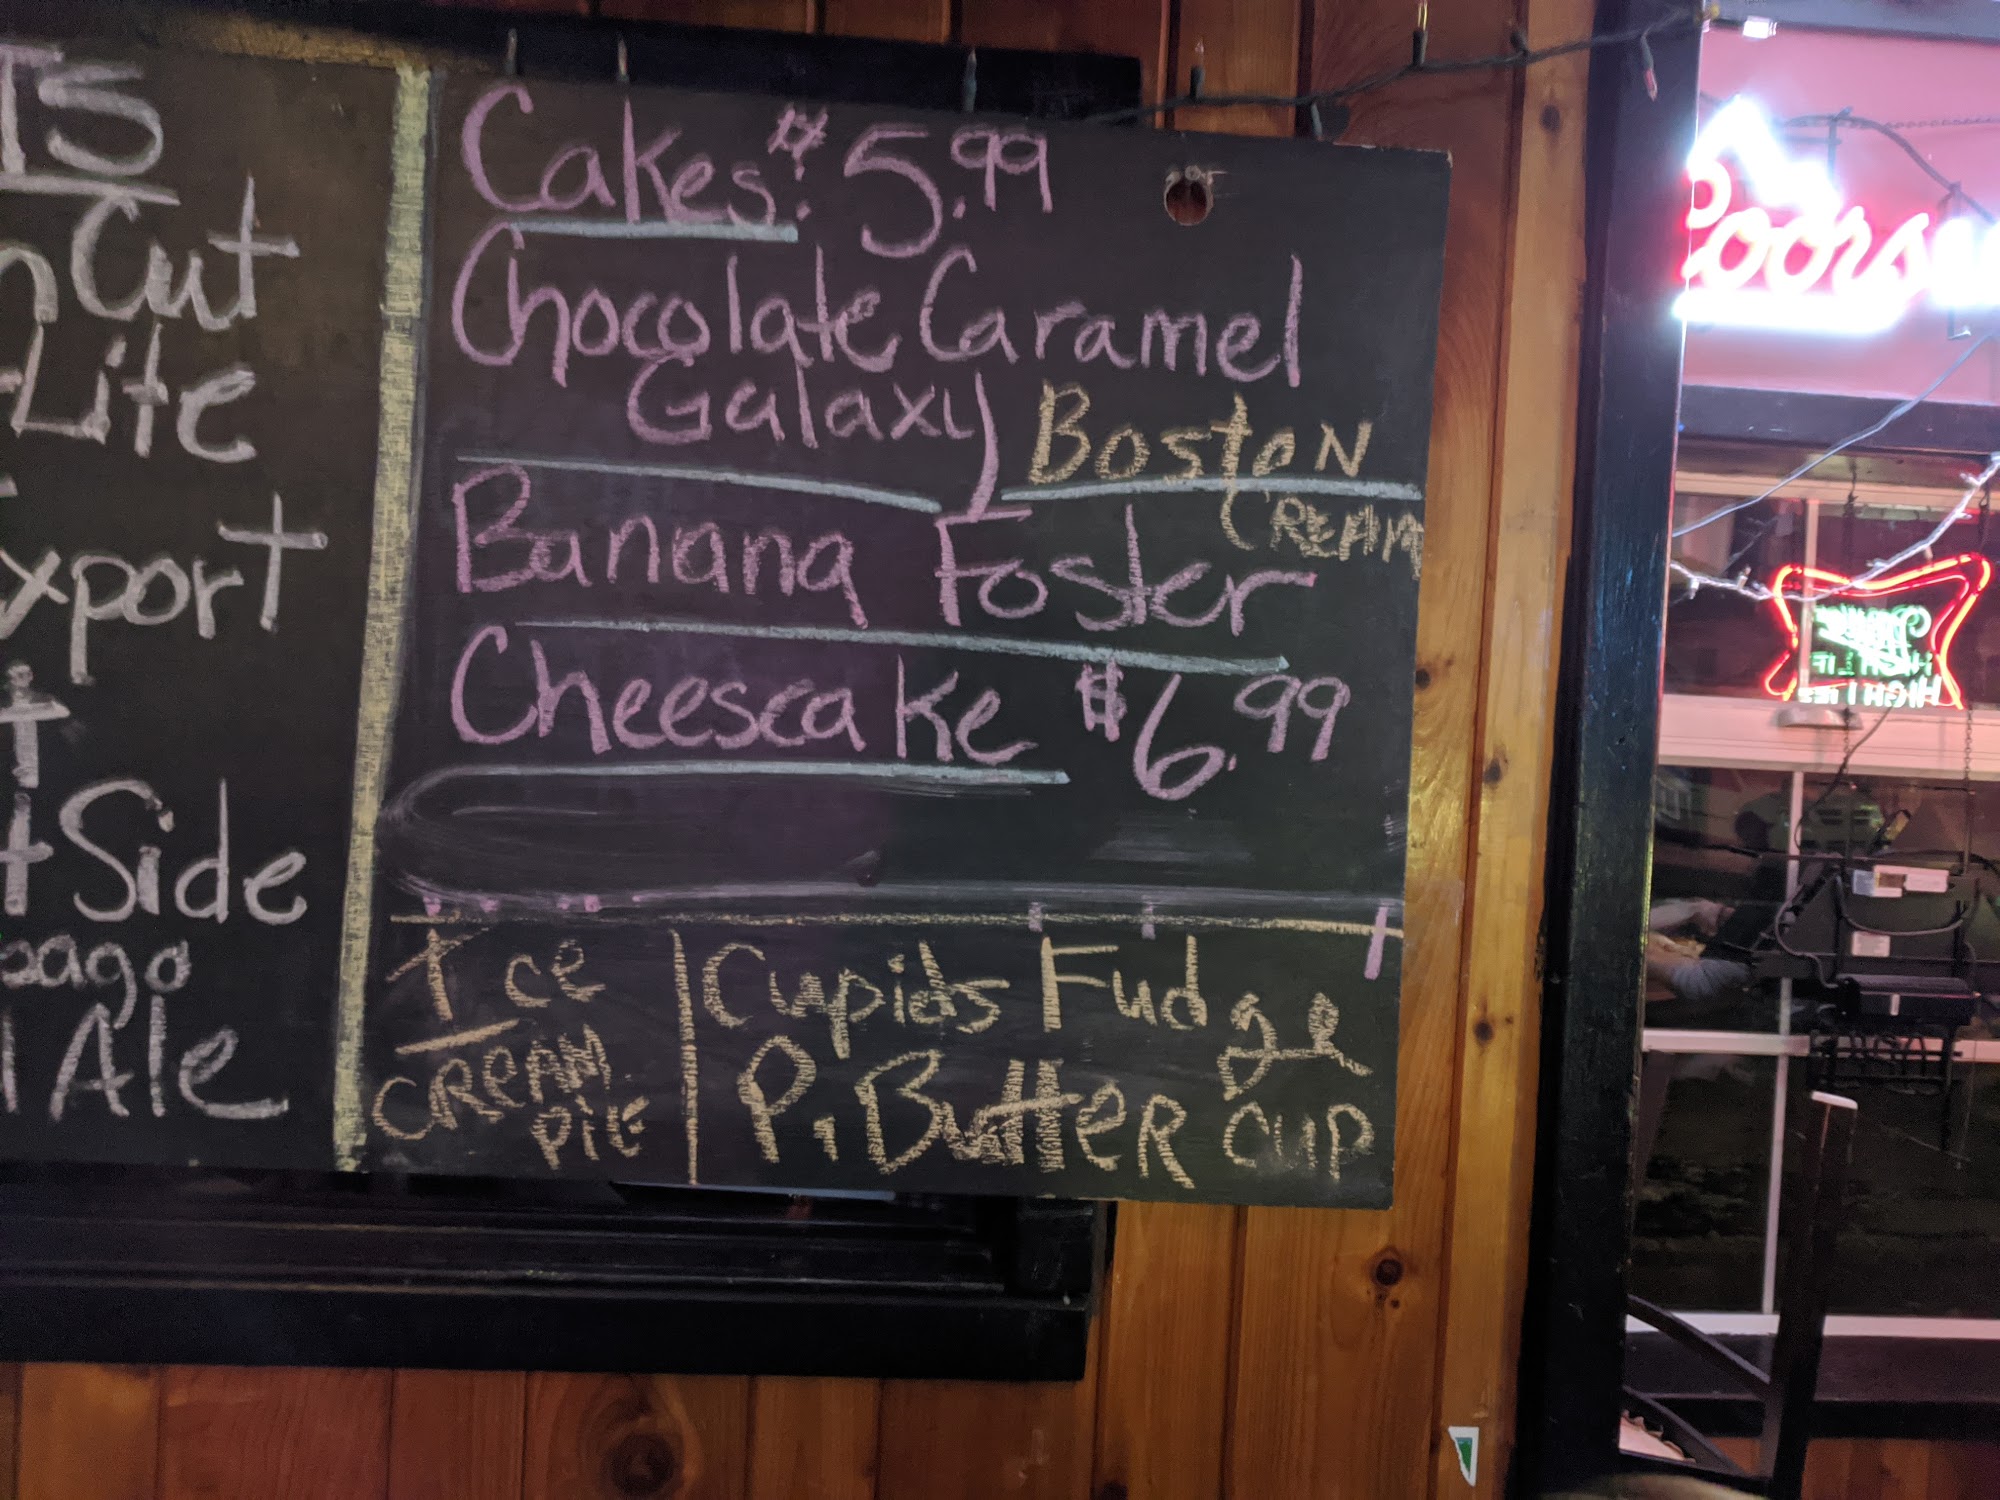 TS
n Cut
Lite
Export
t
t Side
pago
Ale
Cakes: $5.99
Chocolate Caramel
Galaxy
Boston
Cream
Banana Foster
Cheescake $6.99
Ice
CREAM
PiE
Cupids Fudge
P. Butter Cup
Coors
HIGH LIFE